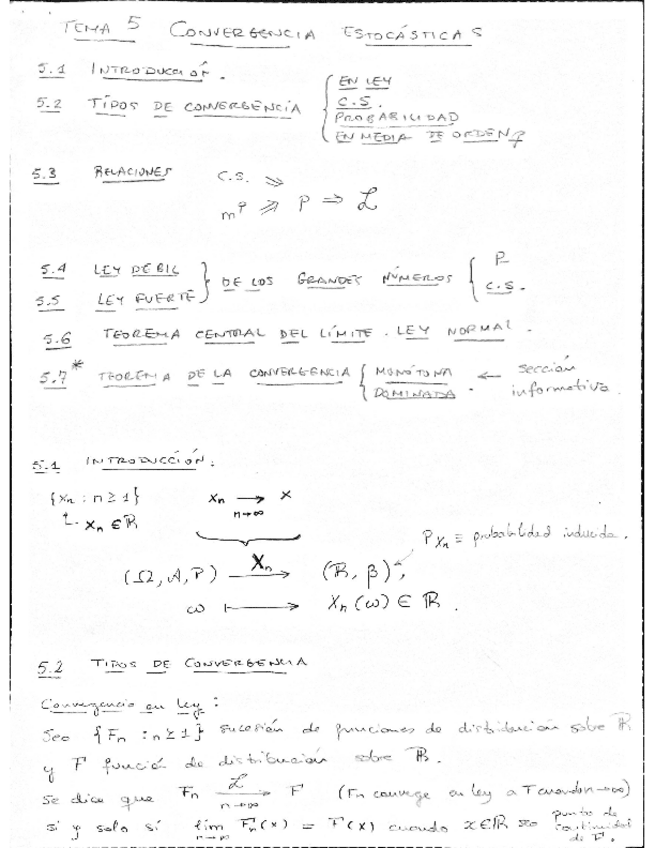 TEMA 5 CONVERGENCIA ESTOCÁSTICAS
5.1 INTRODUCCIÓN.
5.2 TIPOS DE CONVERGENCIA { EN LEY
C.S.
PROBABILIDAD
EN MEDIA DE ORDEN p
5.3 RELACIONES C.S. ⇒
m^p ⇒ P ⇒ L
5.4 LEY DEBIL
5.5 LEY FUERTE } DE LOS GRANDES NÚMEROS { P
C.S.
5.6 TEOREMA CENTRAL DEL LÍMITE. LEY NORMAL.
5.7* TEOREMA DE LA CONVERGENCIA { MONÓTONA
DOMINADA. ← sección informativa.
5.1 INTRODUCCIÓN.
{Xn : n ≥ 1} Xn → X
n→∞
Xn ∈ ℝ
P_Xn ≡ probabilidad inducida.
(Ω, A, P) —Xn→ (ℝ, β),
ω ↦ Xn(ω) ∈ ℝ.
5.2 TIPOS DE CONVERGENCIA
Convergencia en ley:
Sea {Fn : n ≥ 1} sucesión de funciones de distribución sobre ℝ
y F función de distribución sobre ℝ.
Se dice que Fn —L→ F (Fn converge en ley a F cuando n→∞)
n→∞
si y solo sí lím Fn(x) = F(x) cuando x∈ℝ sea punto de continuidad de F.
n→∞